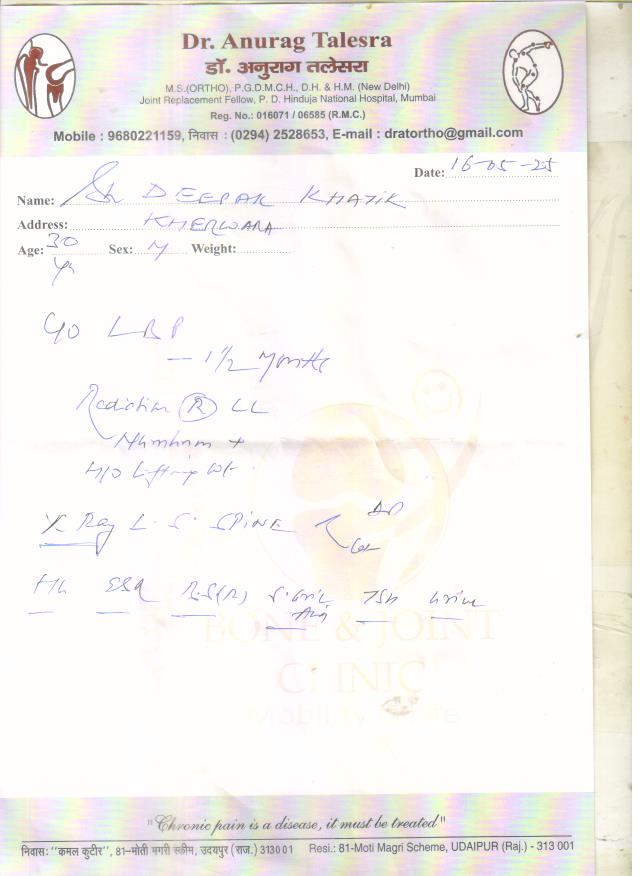 Dr. Anurag Talesra
डॉ. अनुराग तलेसरा
M.S.(ORTHO), P.G.D.M.C.H., D.H. & H.M. (New Delhi)
Joint Replacement Fellow, P. D. Hinduja National Hospital, Mumbai
Reg. No.: 016071 / 06585 (R.M.C.)
Mobile : 9680221159, निवास : (0294) 2528653, E-mail : dratortho@gmail.com
Date: 16-05-25
Name: Sh DEEPAK KHATIK
Address: KHERWARA
Age: 30 Yr Sex: M Weight:
C/o LBP
— 1 1/2 Months
Radiation R LL
Numbness +
H/O Lifting Wt.
X Ray L. S. SPINE AP
Lat
Hb ESR R.S(R) S. Uric Acid TSH Urine
BONE & JOINT
CLINIC
Mobility Life
"Chronic pain is a disease, it must be treated"
निवास: "कमल कुटीर", 81-मोती मगरी स्कीम, उदयपुर (राज.) 313001 Resi.: 81-Moti Magri Scheme, UDAIPUR (Raj.) - 313 001